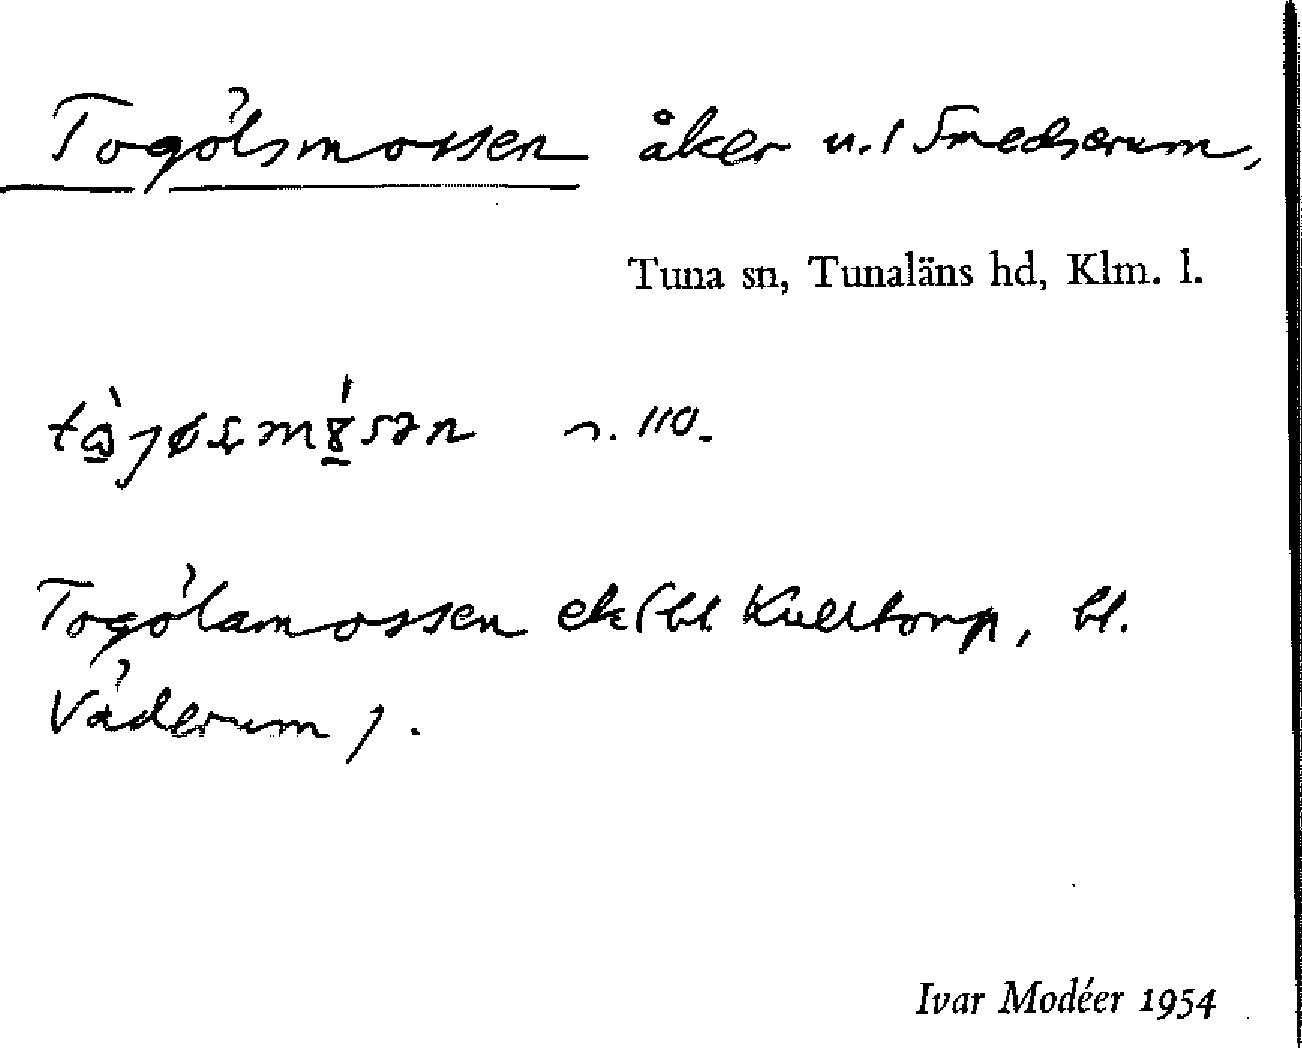 Togölsmossen åker u. l Smedserum,
Tuna sn, Tunaläns hd, Klm. l.
n. 110.
Togölamossen ek (bl. Kvertorp, bl.
Väderum).
Ivar Modéer 1954